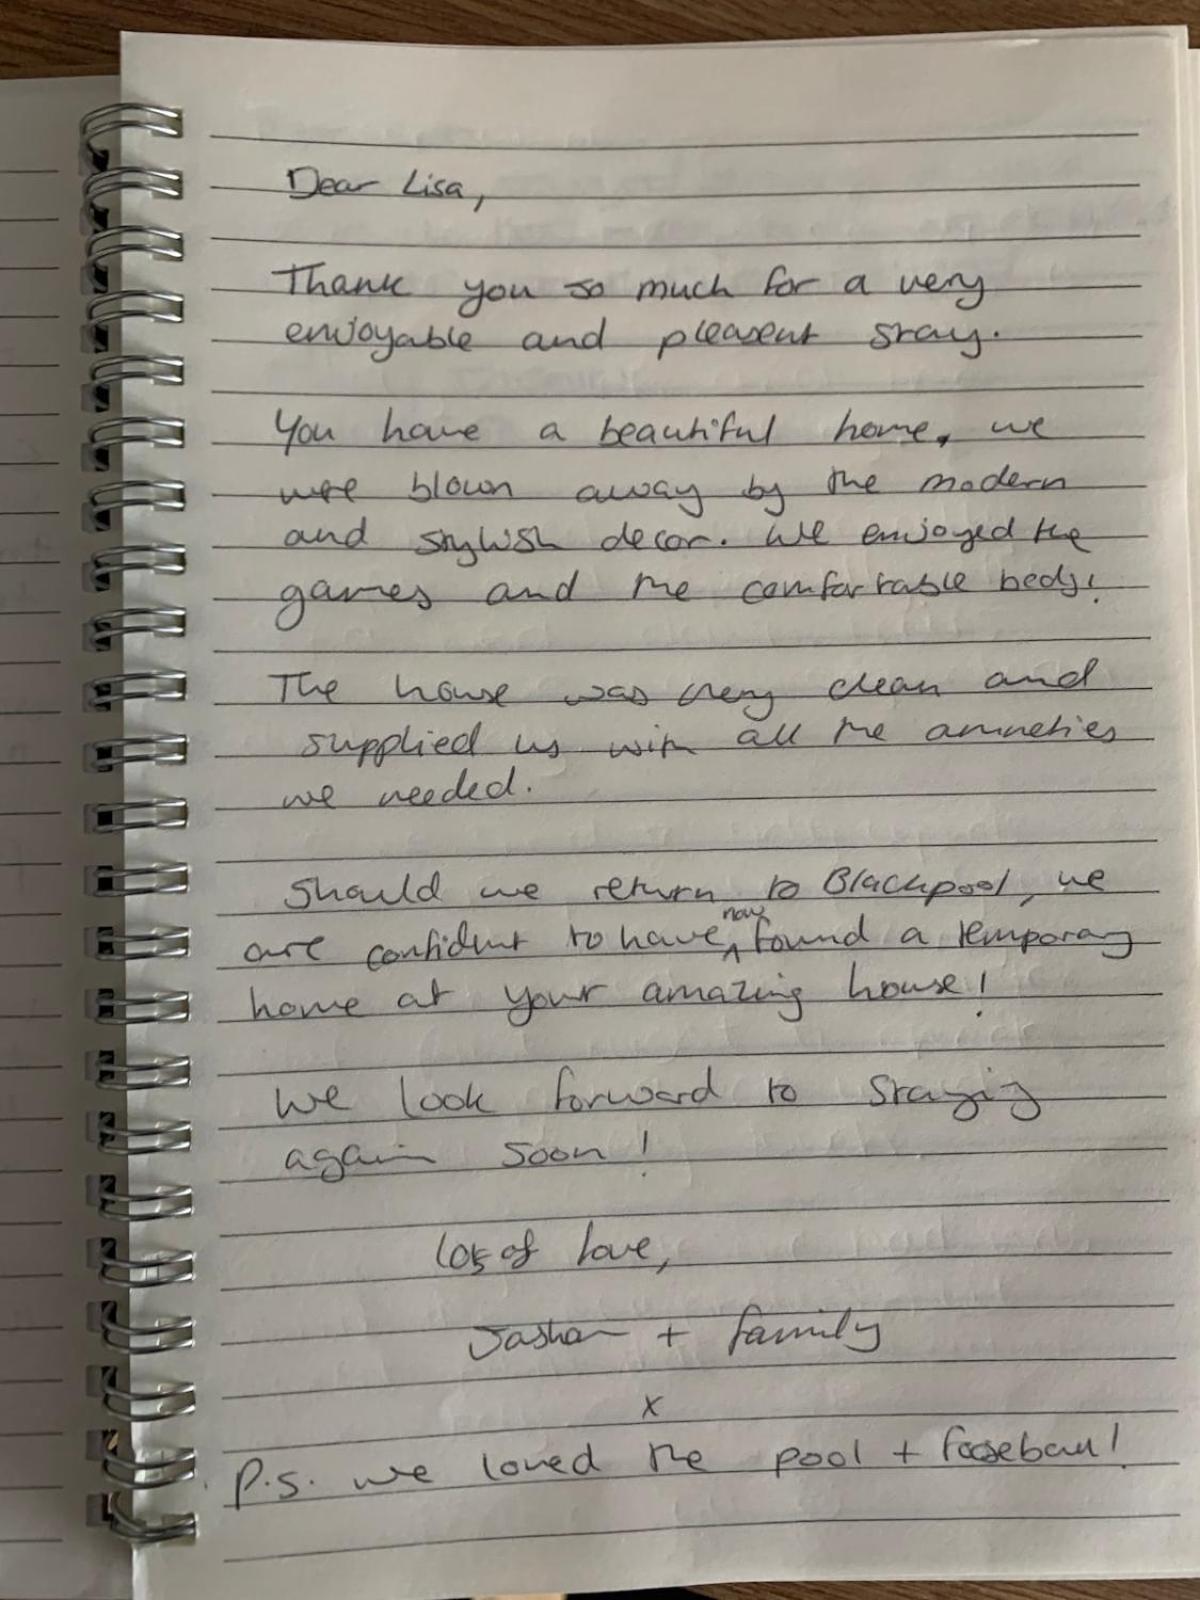 Dear Lisa,
Thank you so much for a very
enjoyable and pleasent stay.
You have a beautiful home, we
were blown away by the modern
and stylish decor. We enjoyed the
games and the comfortable beds!
The house was very clean and
supplied us with all the amneties
we needed.
Should we return to Blackpool, we
are confident to have now found a temporary
home at your amazing house!
We look forward to staying
again soon!
Lots of love,
Jashan + family
x
P.s. we loved the pool + fooseball!